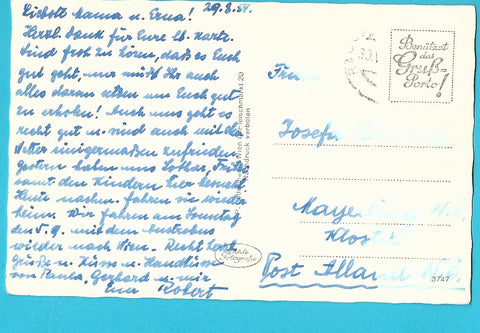 29.8.54.
Liebste Mama u. Erna!
Herzl. Dank für Eure lb. Karte.
Sind froh zu hören, daß es Euch
gut geht, nur müßt Ihr auch
alles daran setzen um Euch gut
zu erholen! Auch uns geht es
recht gut u. sind auch mit dem
Wetter einigermaßen zufrieden.
Gestern haben uns Lothar,
samt den Kindern hier besucht.
Heute nachm. fahren sie wieder
heim. Wir fahren am Sonntag
den 5.9. mit dem Autobus
wieder nach Wien. Recht herzl.
Grüße u. Küsse u. Handküsse
von Paula, Gerhard u. mir
Euer Robert
Fleischmarkt 20
Nachdruck verboten
Echte
Fotografie
Benützet
das
Gruß=
Porto!
Frau
Josefa
Mayerling
Kloster
Post Alland N.Ö.
3747